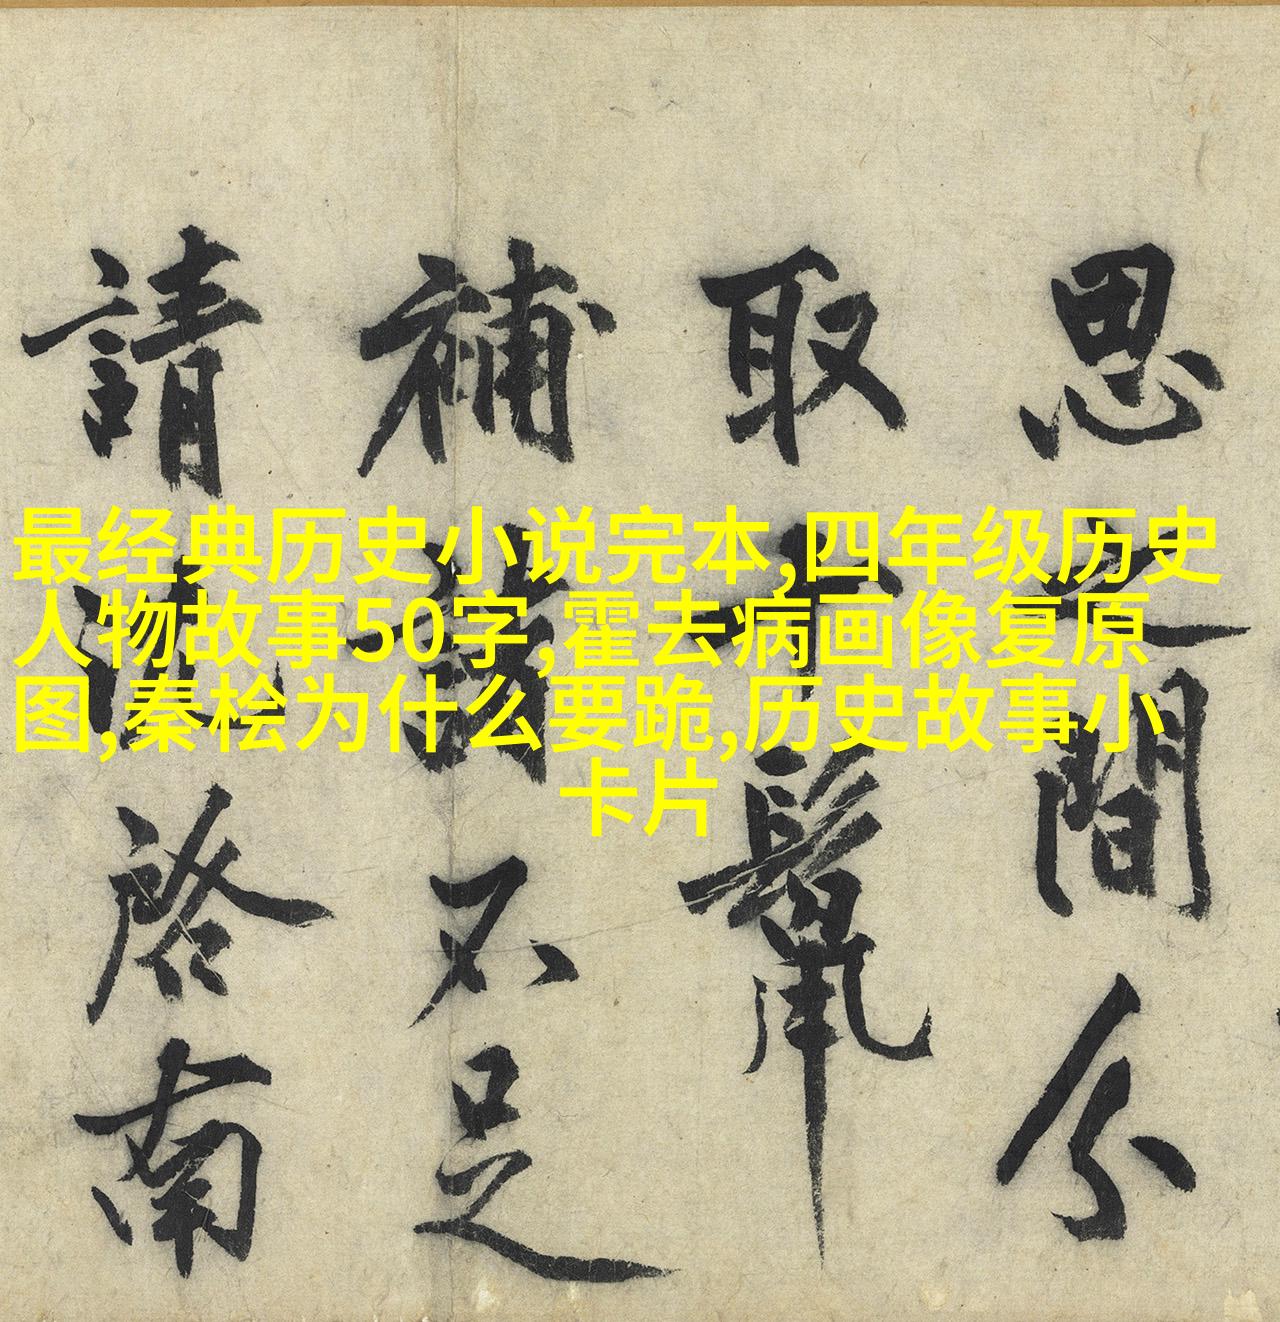 最经典历史小说完本,四年级历史
人物故事50字,霍去病画像复原
图,秦桧为什么要跪,历史故事小
卡片
思之間分
取
補不足
請啓南